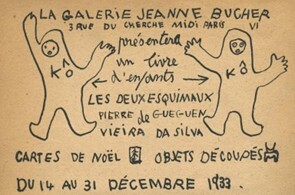 LA GALERIE JEANNE BUCHER
3 RUE DU CHERCHE MIDI PARIS VI
présentera
KÔ
un livre
KÔ
d'enfants
LES DEUX ESQUIMAUX
PIERRE de GUEGUEN
VIEIRA DA SILVA
CARTES DE NOËL OBJETS DÉCOUPÉS
DU 14 AU 31 DÉCEMBRE 1933.